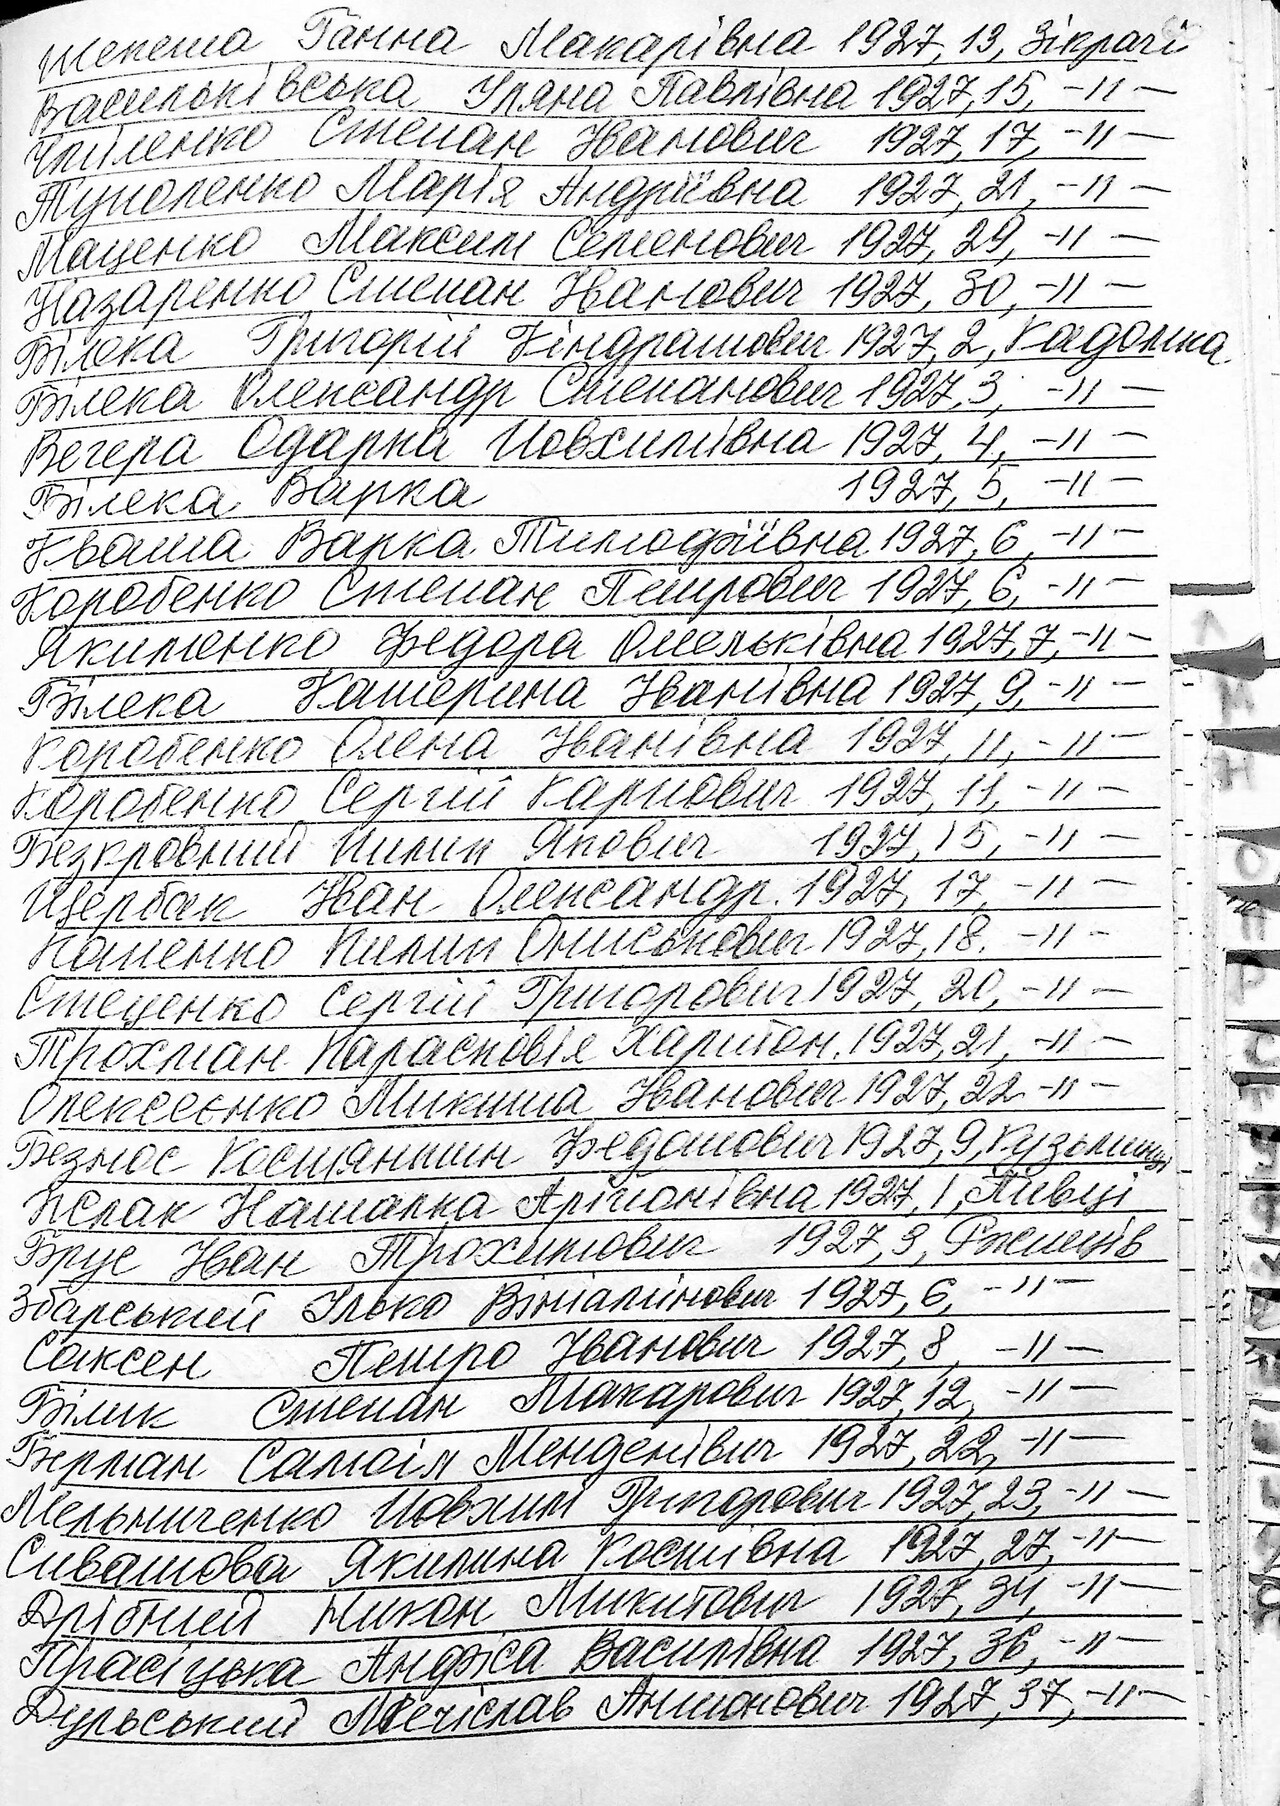 Шепета Ганна Макарівна 1927, 13, Зікрачі
Васильківська Уляна Павлівна 1927, 15, -"-
Степан Іванович 1927, 17, -"-
Туполенко Марія Андріївна 1927, 21, -"-
Маценко Максим Семенович 1927, 29, -"-
Назаренко Степан Іванович 1927, 30, -"-
Білека Григорій Кіндратович 1927, 2, Кадомка
Білека Олександр Степанович 1927, 3, -"-
Вегера Одарка Йовхимівна 1927, 4, -"-
Білека Варка 1927, 5, -"-
Кваша Варка Тимофіївна 1927, 6, -"-
Коробенко Степан Петрович 1927, 6, -"-
Якименко Федора Омельківна 1927, 7, -"-
Білека Катерина Іванівна 1927, 9, -"-
Коробенко Олена Іванівна 1927, 11, -"-
Коробенко Сергій Карпович 1927, 11, -"-
Безкровний Пилип Якович 1927, 15, -"-
Щербак Іван Олександр. 1927, 17, -"-
Капенко Пилип Ониськович 1927, 18. -"-
Стеценко Сергій Григорович 1927, 20, -"-
Трохман Парасковія Харитон. 1927, 21, -"-
Олексеєнко Микита Іванович 1927, 22 -"-
Безнос Костянтин Федотович 1927, 9, Кузьминці
Наталка 1927, 1, Пивці
Брус Іван Трохимович 1927, 3, Ржищів
Збарський Ілько Веніамінович 1927, 6, -"-
Саксен Петро Іванович 1927, 8, -"-
Білик Степан Макарович 1927, 12, -"-
Берман Самоїл Менделівич 1927, 22, -"-
Мельниченко Йовхим Григорович 1927, 23, -"-
Сиватова Якилина Костівна 1927, 27, -"-
Дрібний Никон Микитович 1927, 34, -"-
Прасіцька Анфіса Василівна 1927, 36, -"-
Дульський Мечіслав Антонович 1927, 37, -"-